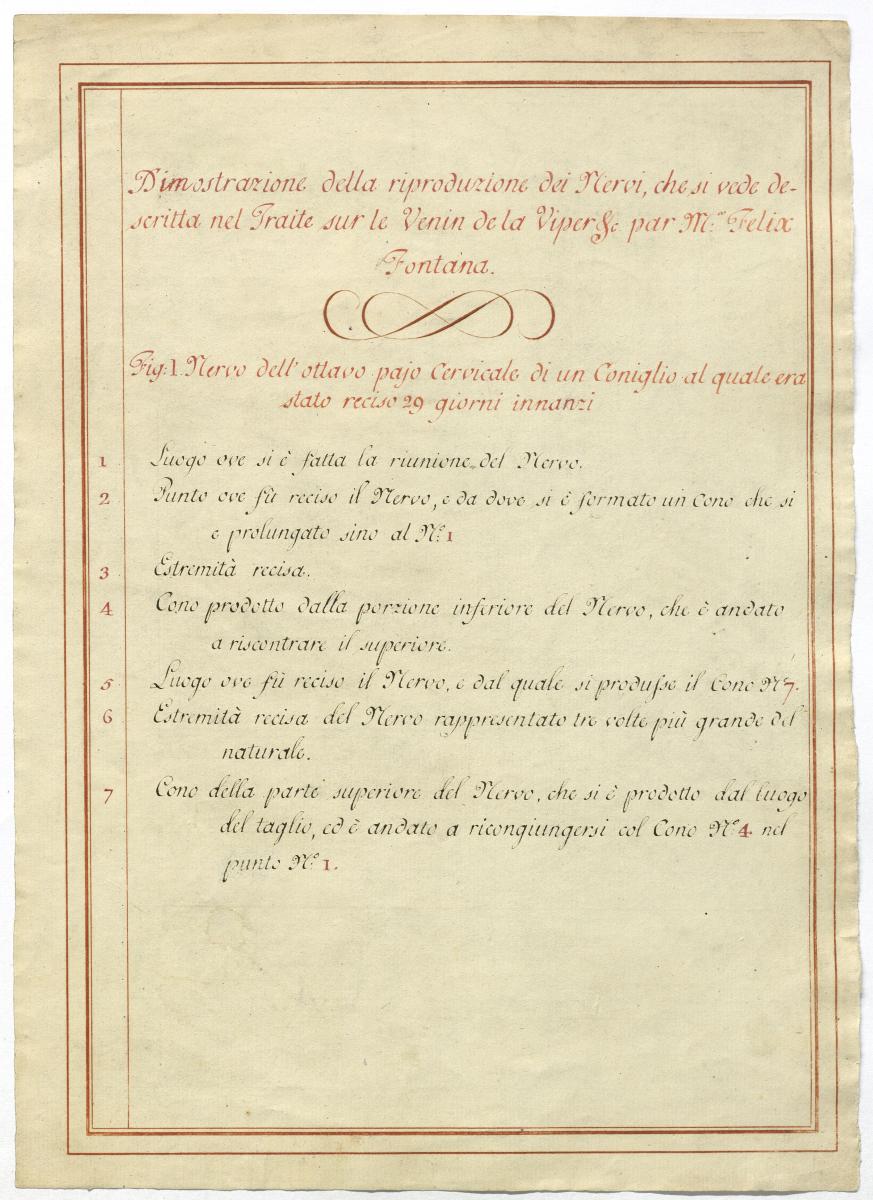 Dimostrazione della riproduzione dei Nervi, che si vede de-
scritta nel Traite sur le Venin de la Viper &c par M:r Felix
Fontana.
Fig: 1. Nervo dell' ottavo pajo Cervicale di un Coniglio al quale era
stato reciso 29 giorni innanzi
1 Luogo ove si è fatta la riunione del Nervo.
2 Punto ove fù reciso il Nervo, e da dove si è formato un Cono che si
e prolungato sino al N.o 1
3 Estremità recisa.
4 Cono prodotto dalla porzione inferiore del Nervo, che è andato
a riscontrare il superiore.
5 Luogo ove fù reciso il Nervo, e dal quale si produſse il Cono N.o 7.
6 Estremità recisa del Nervo rappresentato tre volte più grande del
naturale.
7 Cono della parte superiore del Nervo, che si è prodotto dal luogo
del taglio, ed è andato a ricongiungersi col Cono N.o 4 nel
punto N.o 1.